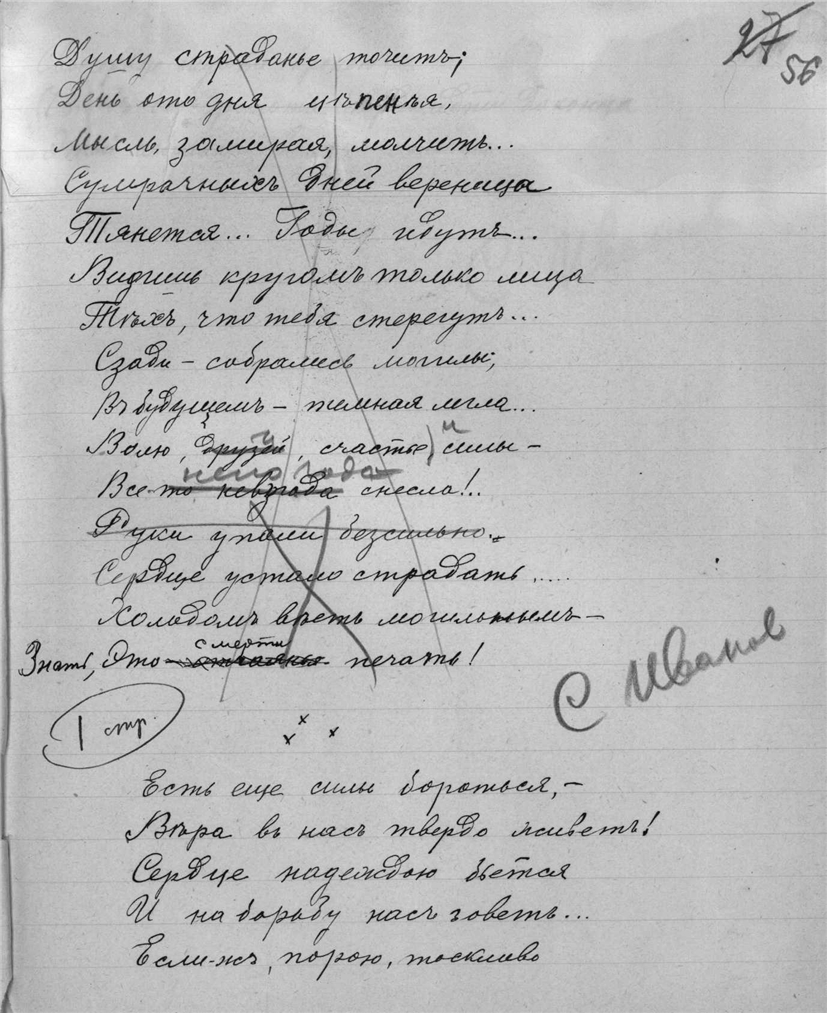 27
56
Душу страданье точитъ;
День ото дня цѣпенѣя,
Мысль, замирая, молчитъ...
Сумрачныхъ дней вереница
Тянется... Годы идутъ...
Видишь кругомъ только лица
Тѣхъ, что тебя стерегутъ...
Сзади – собрались могилы;
Въ будущемъ – темная мгла...
Волю, друзей, счастье, и силы –
непогода
Все-то невзгода снесла!..
Руки упали безсильно..
Сердце устало страдать.....
Холодомъ вѣетъ могильнымъ –
смерти
Знать, это – отчаянья печать!
С Иванов
1 стр.
х х х
Есть еще силы бороться, –
Вѣра въ насъ твердо живетъ!
Сердце надеждою бьется
И на борьбу насъ зоветъ...
Если-жъ, порою, тоскливо